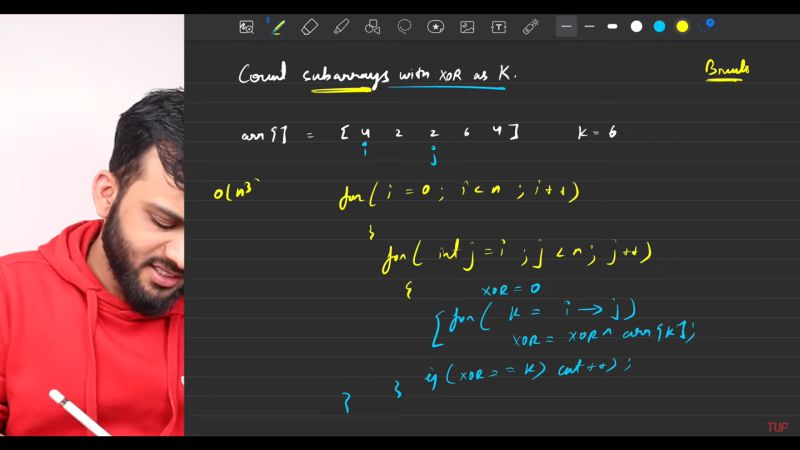 Count subarrays with XOR as K.
Brute
arr[] = [ 4 2 2 6 4 ] K = 6
i j
O(n³
for( i = 0 ; i < n ; i++)
{
for( int j = i ; j < n ; j++)
{ XOR = 0
[for( K = i → j)
XOR = XOR ^ arr[K];
if(XOR == K) cnt++;
} }
TUF